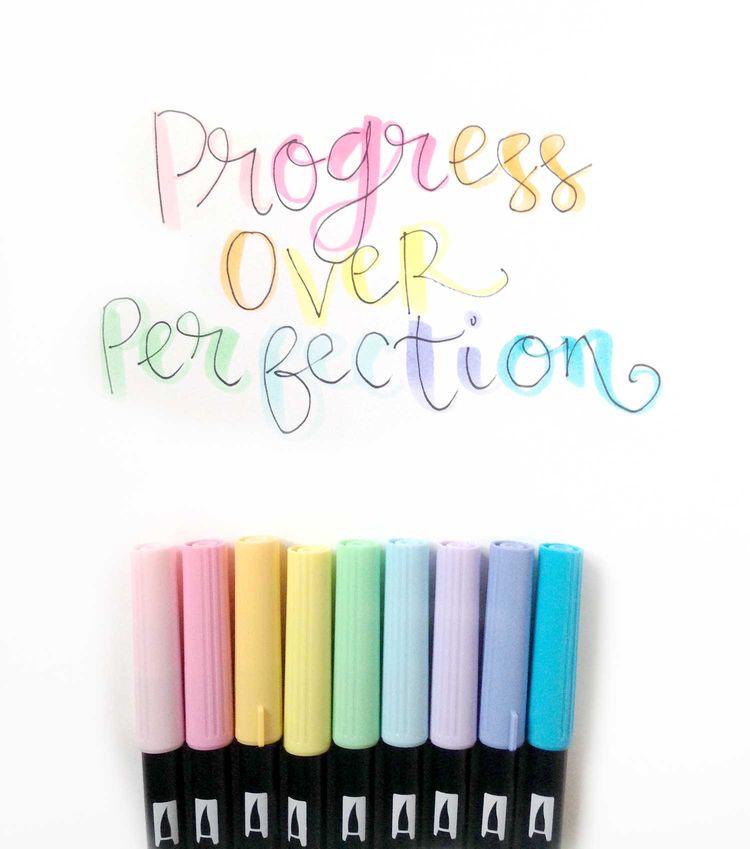 Progress
Over
Perfection